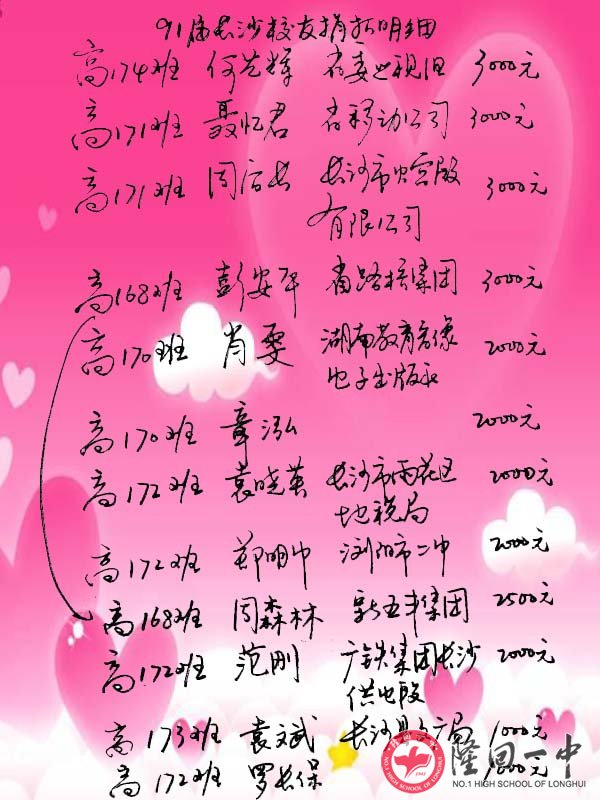 91届长沙校友捐款明细
高174班 何光辉 省委巡视组 3000元
高171班 聂忆君 省移动公司 3000元
高171班 周后长 长沙市 3000元
有限公司
高168班 彭安平 省路桥集团 3000元
高170班 肖雯 湖南教育音像 2000元
电子出版社
高170班 章泓 2000元
高172班 袁晓英 长沙市雨花区 2000元
地税局
高172班 郑明中 浏阳市二中 2000元
高168班 周森林 新五丰集团 2500元
高172班 范刚 广铁集团长沙 2000元
供电段
高173班 袁文斌 长沙县 局 1000元
高172班 罗长保 1000元
隆回一中
NO.1 HIGH SCHOOL OF LONGHUI